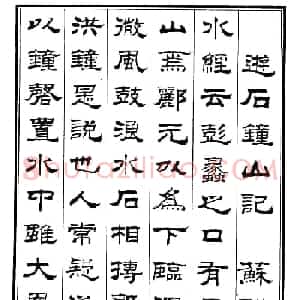 遊石鐘山記 蘇
水經云彭蠡之口有
山焉酈元以為下臨
微風鼓浪水石相搏
洪鐘是說也人常疑
以鐘磬置水中雖大